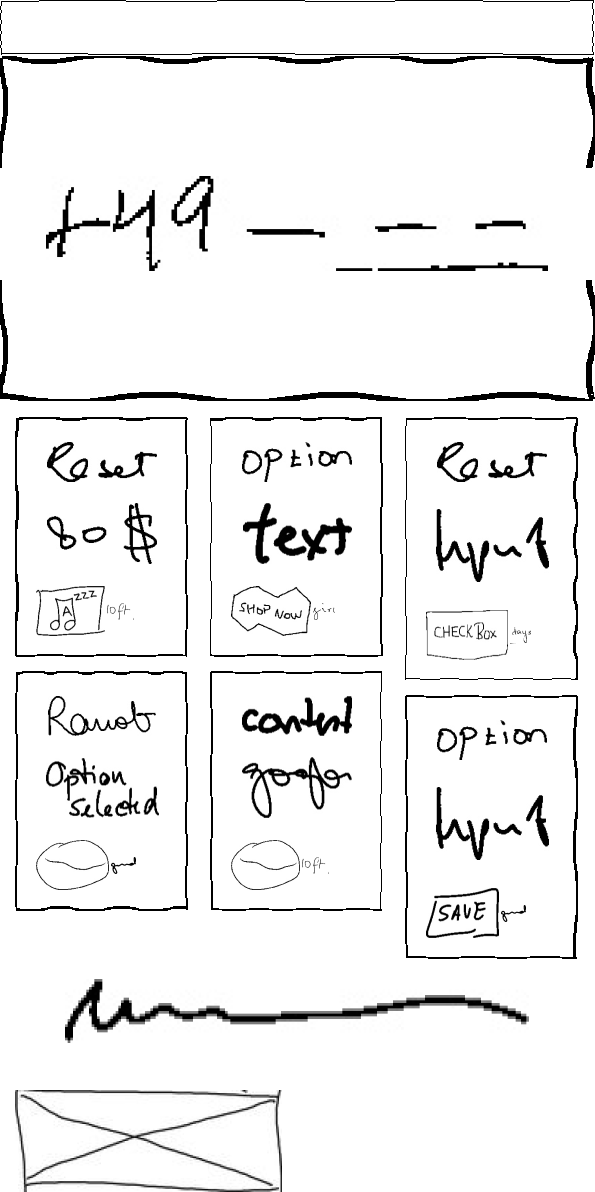 +49 _ _ _
Reset
80 $
A zzz
10ft.
Option
text
SHOP NOW
girl
Reset
Input
CHECKBox
days
Option
Selected
good
content
10ft.
Option
Input
SAVE
good